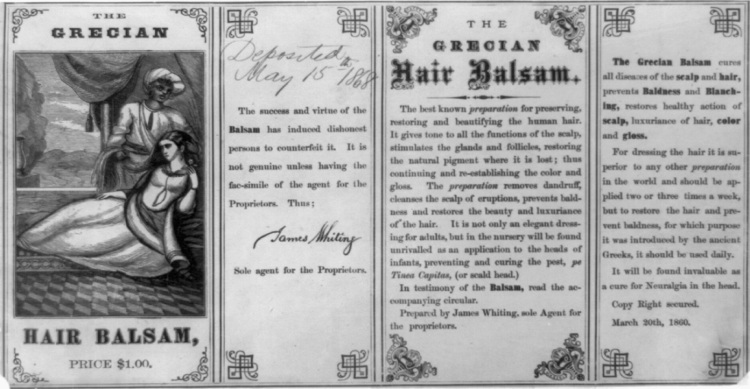 THE
GRECIAN
HAIR BALSAM,
PRICE $1.00.
Deposited
May 15 1868
The success and virtue of the
Balsam has induced dishonest
persons to counterfeit it. It is
not genuine unless having the
fac-simile of the agent for the
Proprietors. Thus;
James Whiting
Sole agent for the Proprietors.
THE
GRECIAN
Hair Balsam.
The best known preparation for preserving,
restoring and beautifying the human hair.
It gives tone to all the functions of the scalp,
stimulates the glands and follicles, restoring
the natural pigment where it is lost; thus
continuing and re-establishing the color and
gloss. The preparation removes dandruff,
cleanses the scalp of eruptions, prevents bald-
ness and restores the beauty and luxuriance
of the hair. It is not only an elegant dress-
ing for adults, but in the nursery will be found
unrivalled as an application to the heads of
infants, preventing and curing the pest, pe
Tinea Capitas, (or scald head.)
In testimony of the Balsam, read the ac-
companying circular.
Prepared by James Whiting, sole Agent for
the proprietors.
The Grecian Balsam cures
all diseases of the scalp and hair,
prevents Baldness and Blanch-
ing, restores healthy action of
scalp, luxuriance of hair, color
and gloss.
For dressing the hair it is su-
perior to any other preparation
in the world and should be ap-
plied two or three times a week,
but to restore the hair and pre-
vent baldness, for which purpose
it was introduced by the ancient
Greeks, it should be used daily.
It will be found invaluable as
a cure for Neuralgia in the head.
Copy Right secured.
March 20th, 1860.